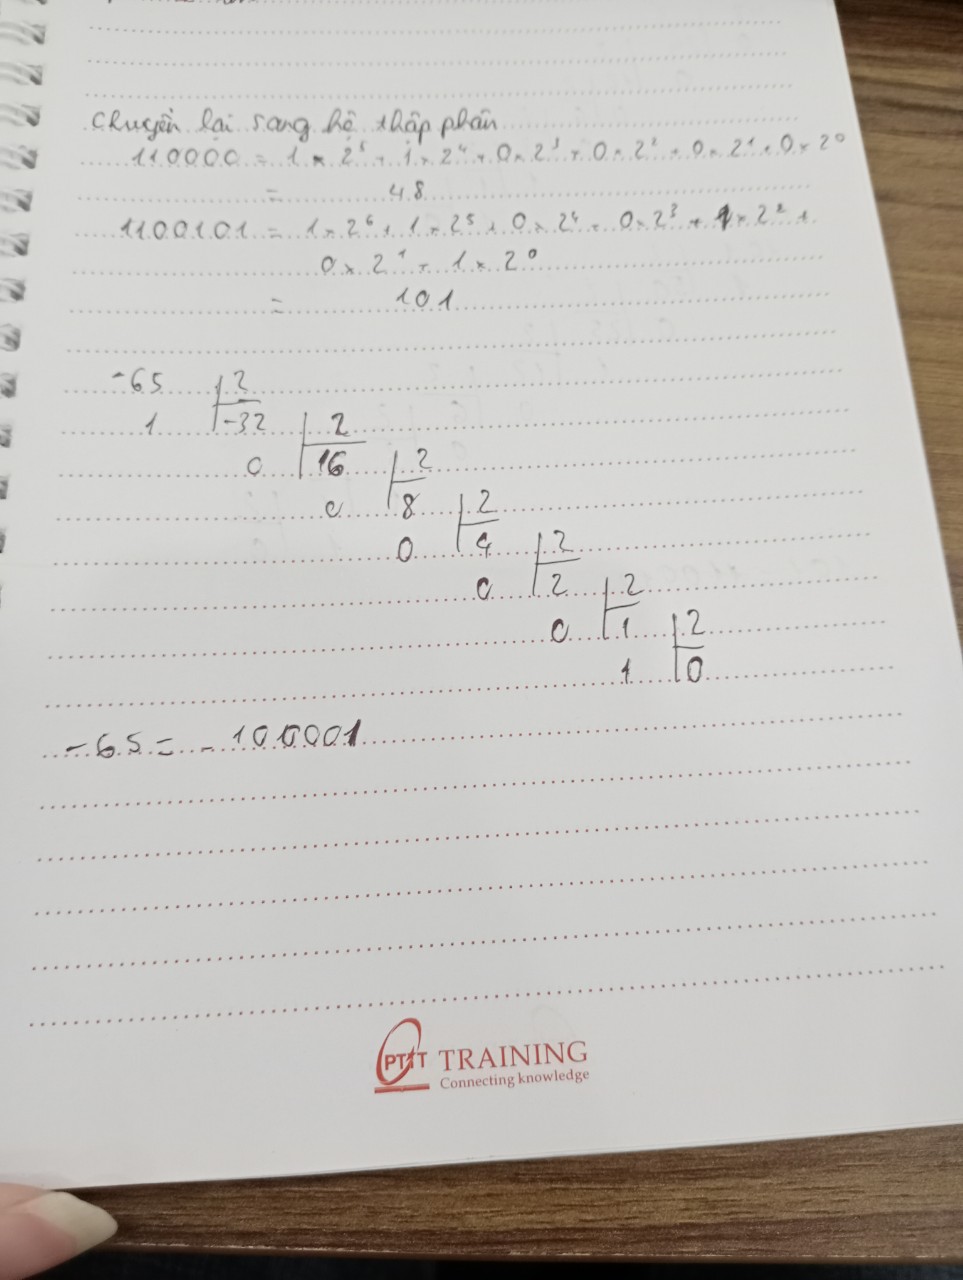 Chuyển lại sang hệ thập phân
110000 = 1 × 2⁵ + 1 × 2⁴ + 0 × 2³ + 0 × 2² + 0 × 2¹ + 0 × 2⁰
= 48
1100101 = 1 × 2⁶ + 1 × 2⁵ + 0 × 2⁴ + 0 × 2³ + 1 × 2² +
0 × 2¹ + 1 × 2⁰
= 101
-65 2
1 -32 2
0 16 2
0 8 2
0 4 2
0 2 2
0 1 2
1 0
-65 = -100001
PTIT TRAINING
Connecting knowledge